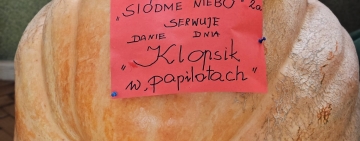 „SIÓDME NIEBO"
SERWUJE
DANIE DNIA
„Klopsik
w „papilotach"